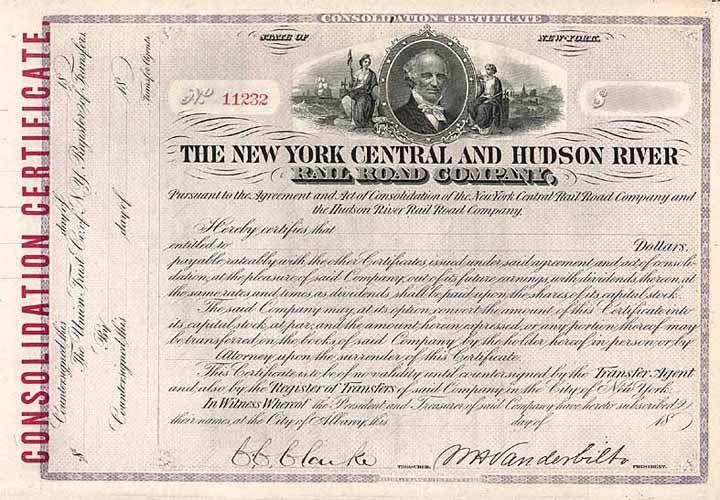 CONSOLIDATION CERTIFICATE
STATE OF NEW-YORK.
No 11232 $
THE NEW YORK CENTRAL AND HUDSON RIVER
RAIL ROAD COMPANY,
Pursuant to the Agreement and Act of Consolidation of the New York Central Rail Road Company and
the Hudson River Rail Road Company.
Hereby certifies, that
entitled to Dollars,
payable rateably, with the other Certificates, issued under said agreement and act of consoli-
dation, at the pleasure of said Company, out of its future earnings, with dividends thereon, at
the same rates and times as dividends shall be paid upon the shares of its capital stock.
The said Company may, at its option, convert the amount of this Certificate into
its capital stock, at par; and the amount herein expressed, or any portion thereof may
be transferred, on the books of said Company, by the holder hereof in person, or by
Attorney upon the surrender of this Certificate.
This Certificate is to be of no validity until countersigned by the Transfer Agent
and also by the Register of Transfers of said Company, in the City of New York.
In Witness Whereof the President and Treasurer of said Company have hereto subscribed
their names, at the City of Albany, this day of 18
C C Clarke TREASURER. WH Vanderbilt PRESIDENT.
CONSOLIDATION CERTIFICATE.
Countersigned this day of 18
The Union Trust Co. of N.Y. Registers of Transfers.
By
Countersigned this day of 18
Transfer Agents
$